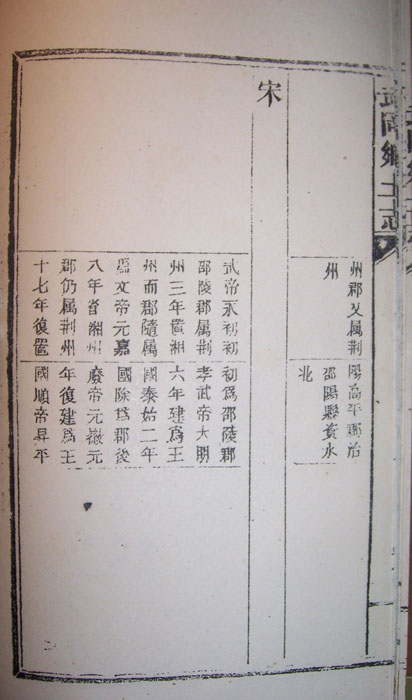 武岡鄉土志
州郡又属荆
州
陽高平郡治
邵陽縣資水
北
宋
武帝永初初
邵陵郡属荆
州三年置湘
州而郡隨属
焉文帝元嘉
八年省湘州
郡仍属荆州
十七年復置
初爲邵陵郡
孝武帝大明
六年建爲王
國泰始二年
國除爲郡後
廢帝元徽元
年復建爲王
國順帝昇平